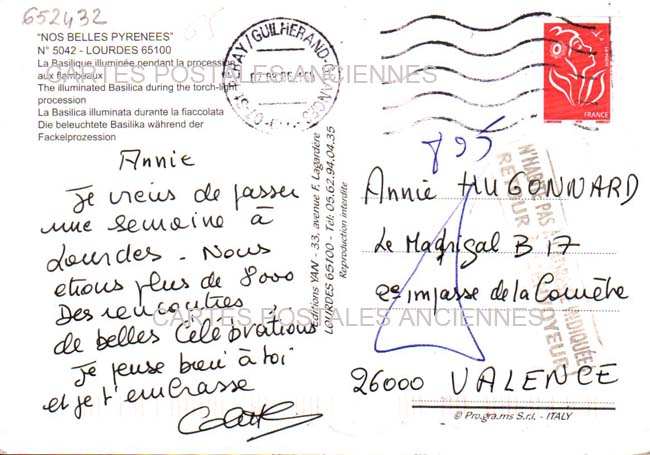 652432
"NOS BELLES PYRENEES"
N° 5042 - LOURDES 65100
La Basilique illuminée pendant la procession
aux flambeaux
The illuminated Basilica during the torch-light
procession
La Basilica illuminata durante la fiaccolata
Die beleuchtete Basilika während der
Fackelprozession
CARTES POSTALES ANCIENNES
Annie
Je viens de passer
une semaine à
Lourdes - Nous
etions plus de 8000
Des rencontres,
de belles Célébrations
Je pense bien à toi
et je t'embrasse
Editions YAN - 33, avenue F. Lagardère
LOURDES 65100 - Tél: 05.62.94.04.35
Reproduction interdite
GUILHERAND-GRANGES
FRANCE
Annie HUGONNARD
Le Madrigal B 17
2e impasse de la Comète
26000 VALENCE
N'HABITE PAS À L'ADRESSE INDIQUÉE
RETOUR À L'ENVOYEUR
CARTES POSTALES ANCIENNES
© Pro.gra.ms S.r.l. - ITALY